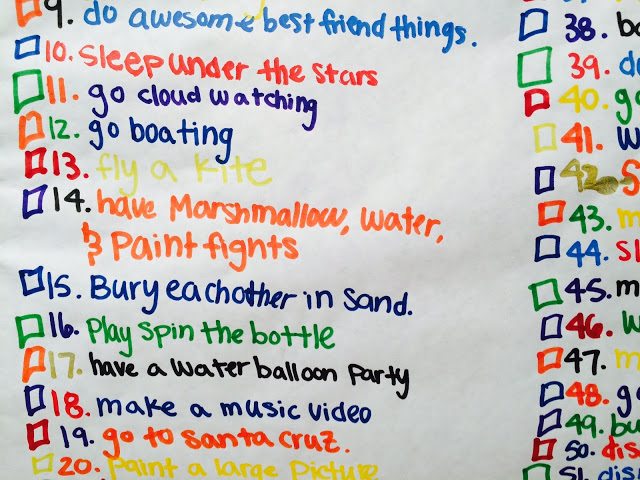 9. do awesome best friend things.
10. Sleep under the stars
11. go cloud watching
12. go boating
13. fly a kite
14. have Marshmallow, water,
& Paint fignts
15. Bury eachother in sand.
16. Play spin the bottle
17. have a water balloon party
18. make a music video
19. go to santa cruz.
20. paint a large picture
38.
39.
40.
41.
42.
43.
44.
45.
46.
47.
48.
49.
50.
51.